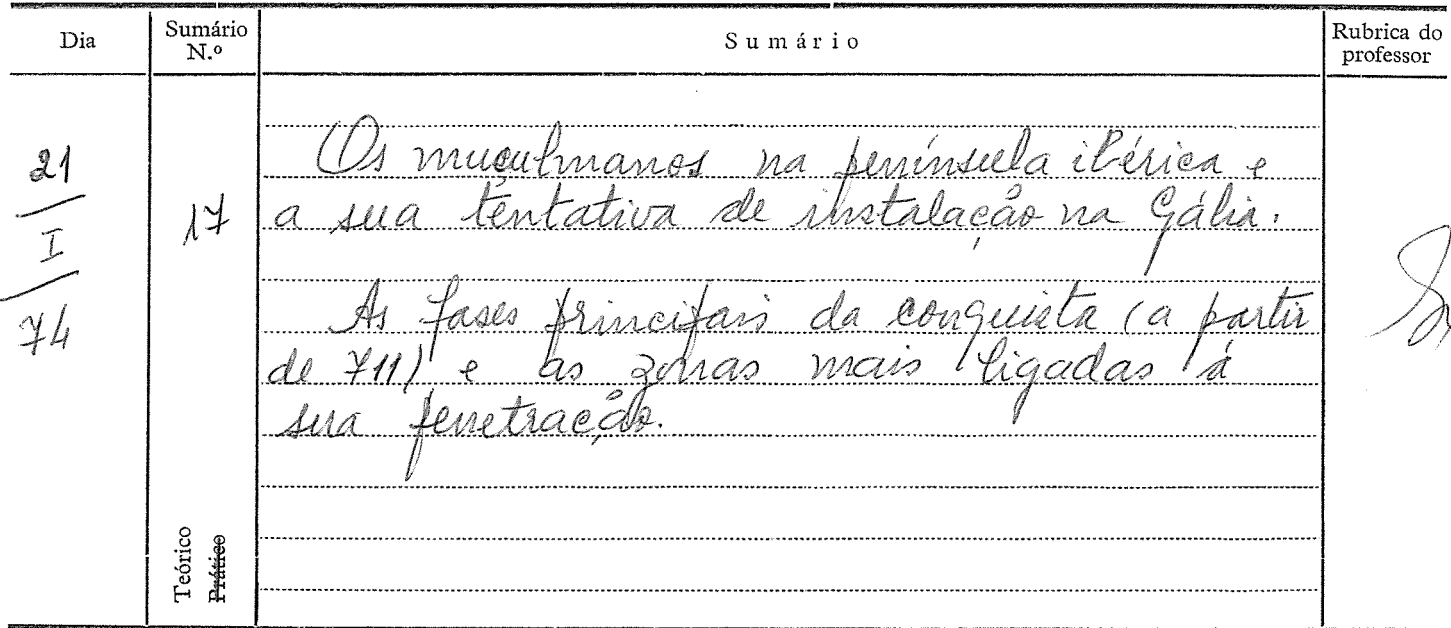 Dia
Sumário
N.º
Sumário
Rubrica do
professor
21
I
74
17
Os muçulmanos na península ibérica e
a sua tentativa de instalação na Gália.
As fases principais da conquista (a partir
de 711) e as zonas mais ligadas à
sua penetração.
Teórico
Prático